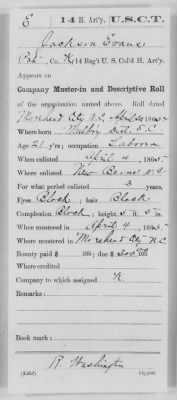 E | 14 H. Art'y. | U.S.C.T.
Jackson Evans
Co. K, 14 Reg't U. S. Col'd H. Art'y.
Appears on
Company Muster-in and Descriptive Roll
of the organization named above. Roll dated
Morehead City N.C., 1865.
Where born S.C.
Age 21 y'rs; occupation Laborer
When enlisted April 4, 1865.
Where enlisted New Berne N.C.
For what period enlisted 3 years.
Eyes Black; hair Black
Complexion Black; height 5 ft. 5 in.
When mustered in April 4, 1865.
Where mustered in Morehead City N.C.
Bounty paid $ 100; due $ 100
Where credited
Company to which assigned K.
Remarks:
Book mark:
R. Washington
Copyist.